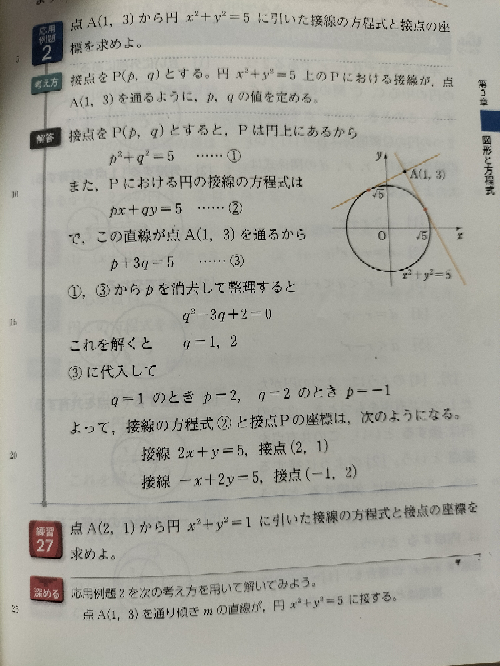 応用
例題
2
点A(1, 3)から円 x²+y²=5 に引いた接線の方程式と接点の座
標を求めよ。
5
考え方
接点をP(p, q)とする。円 x²+y²=5 上のPにおける接線が，点
A(1, 3)を通るように，p, q の値を定める。
解答
接点をP(p, q)とすると，Pは円上にあるから
p²+q²=5 ……①
また，Pにおける円の接線の方程式は
10
px+qy=5 ……②
で，この直線が点A(1, 3)を通るから
p+3q=5 ……③
①，③からpを消去して整理すると
q²-3q+2=0
15
これを解くと q=1, 2
③に代入して
q=1 のとき p=2, q=2 のとき p=-1
よって，接線の方程式②と接点Pの座標は，次のようになる。
20
接線 2x+y=5，接点(2, 1)
接線 -x+2y=5，接点(-1, 2)
y
A(1, 3)
√5
O
√5
x
x²+y²=5
第3章
図形と方程式
練習
27
点A(2, 1)から円 x²+y²=1 に引いた接線の方程式と接点の座標を
求めよ。
深める
応用例題2を次の考え方を用いて解いてみよう。
25
点A(1, 3)を通り傾き m の直線が，円 x²+y²=5 に接する。